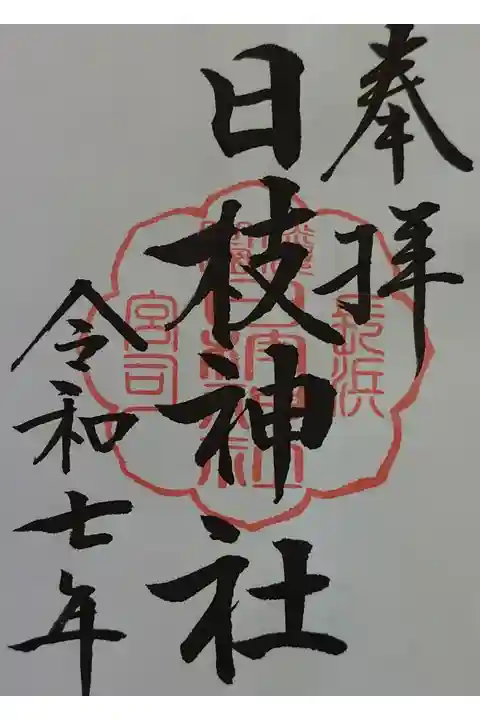 奉拝
日枝神社
令和七年
長浜
宮司